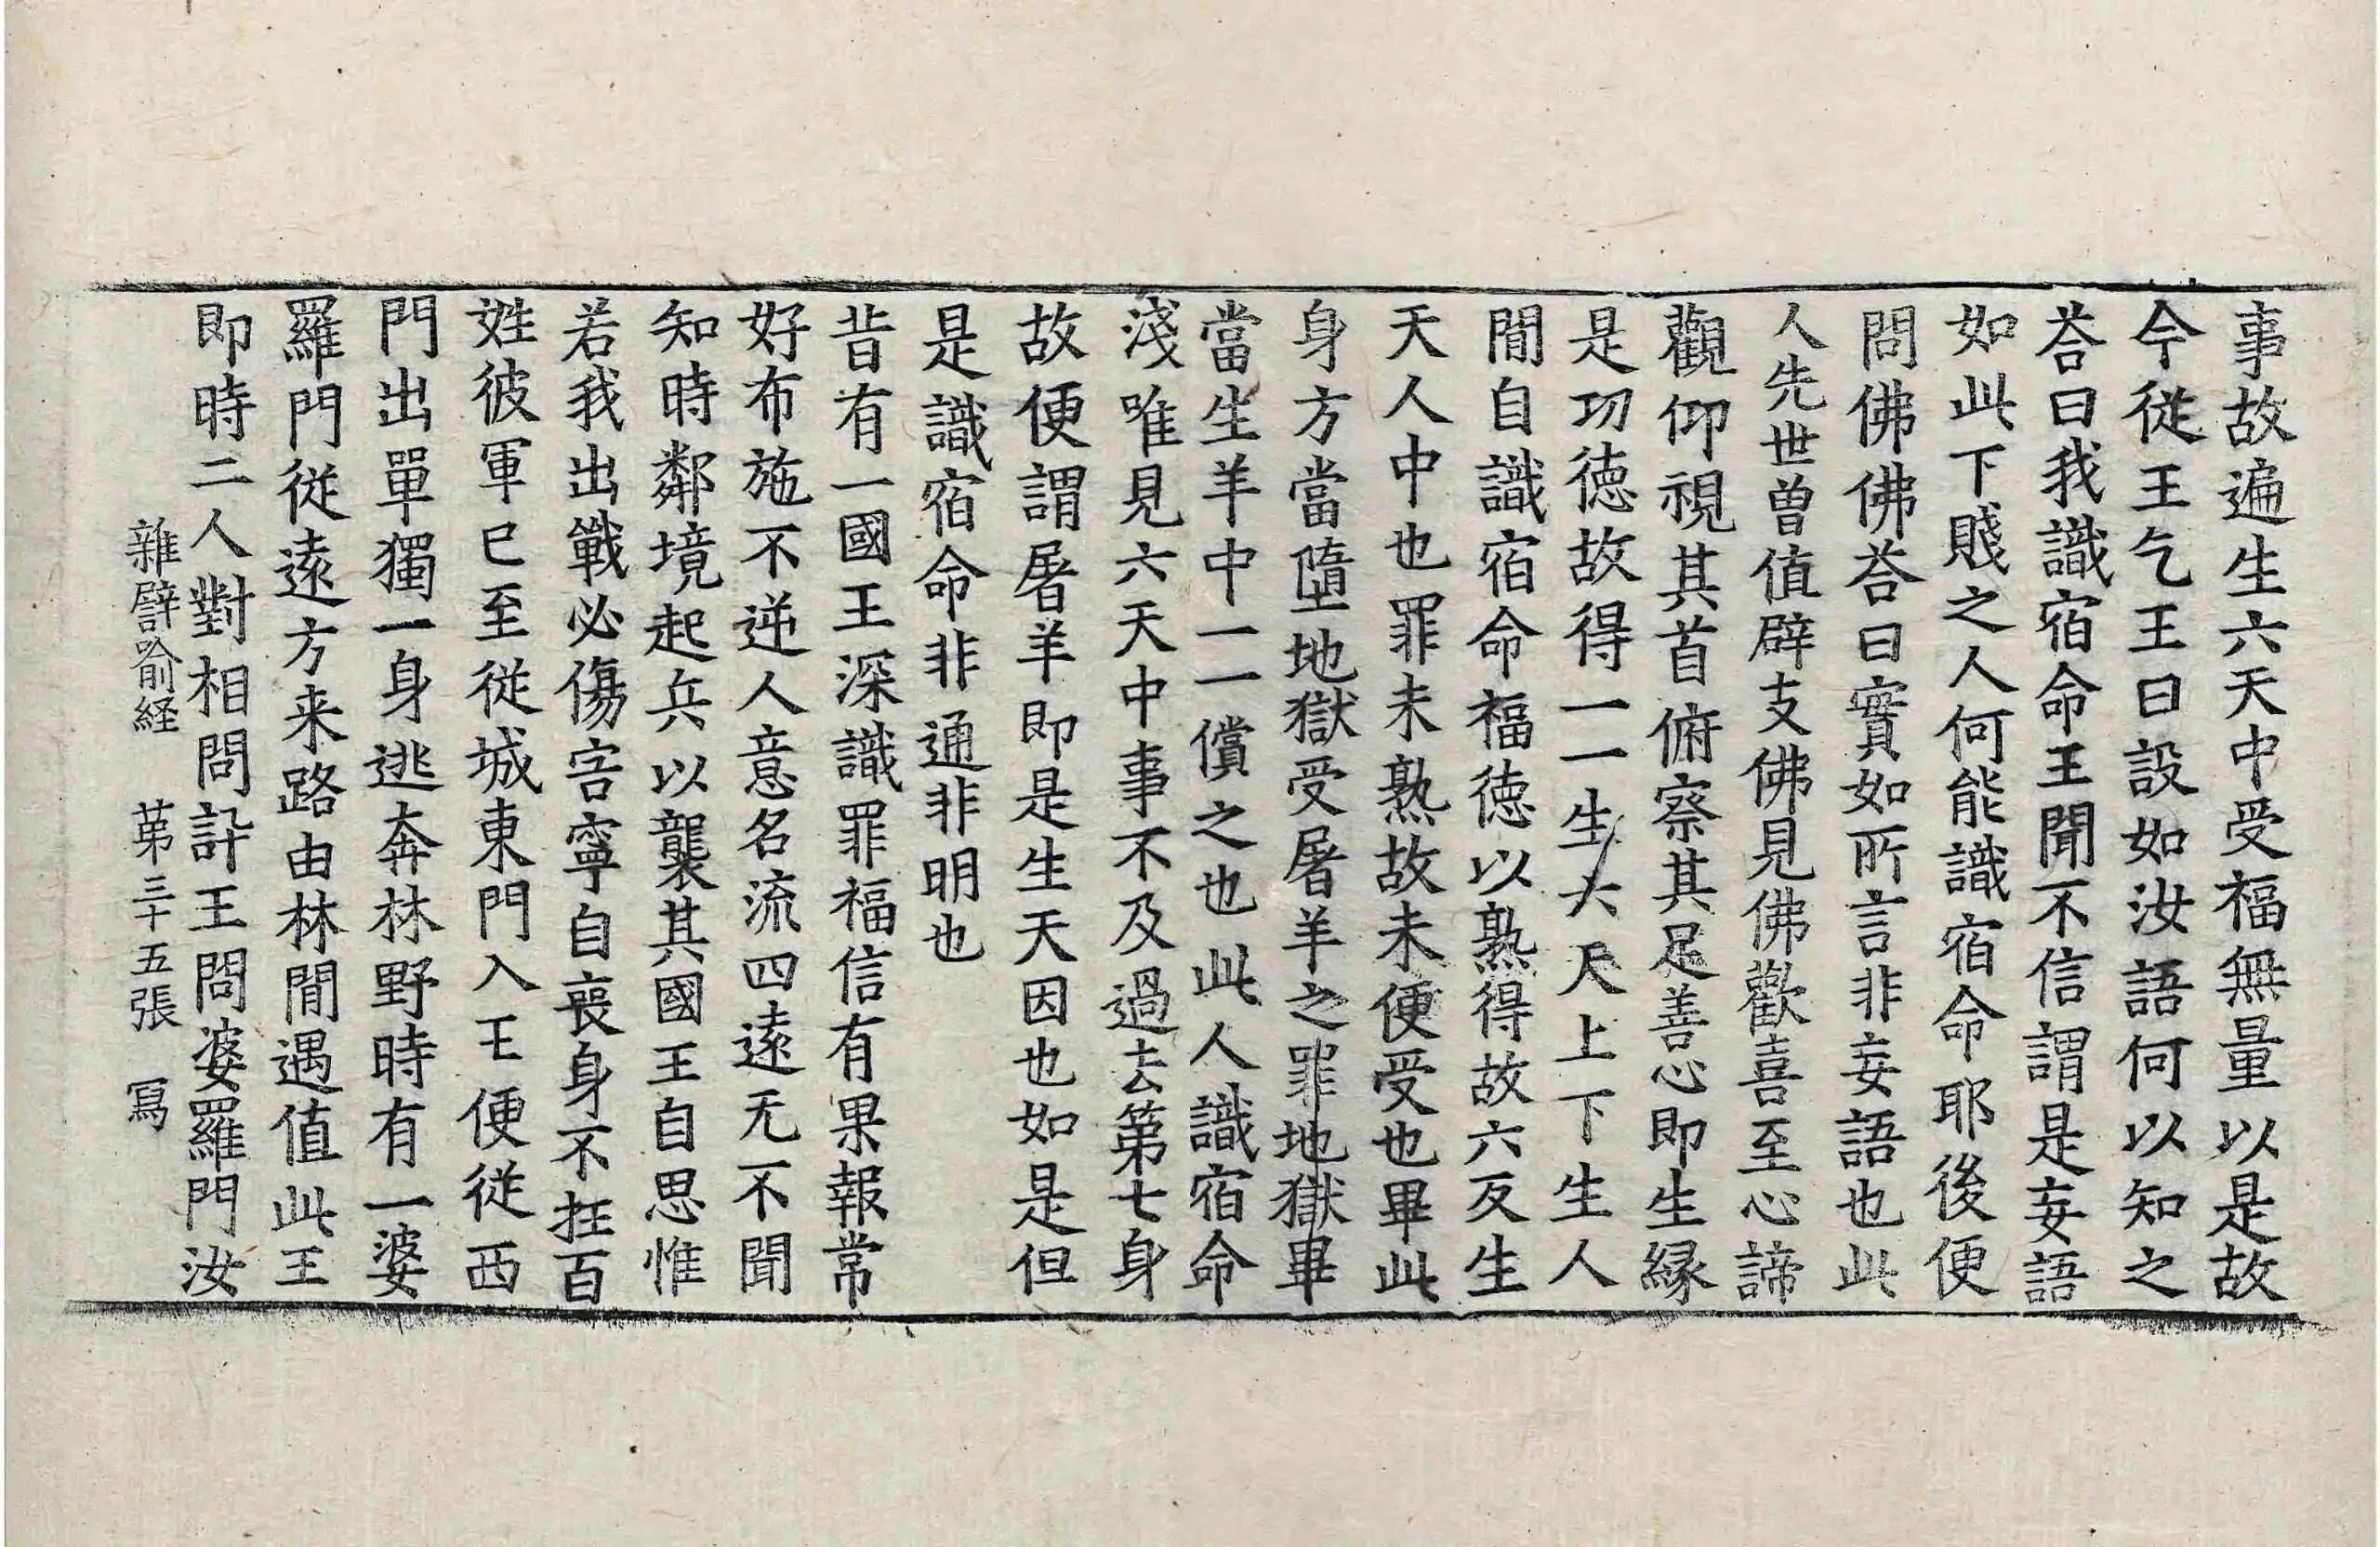 事故遍生六天中受福無量以是故
今從王乞王曰設如汝語何以知之
荅曰我識宿命王聞不信謂是妄語
如此下賤之人何能識宿命耶後便
問佛佛荅曰實如所言非妄語也此
人先世曽值辟支佛見佛歡喜至心諦
觀仰視其首俯察其足善心即生縁
是功徳故得一一生六天上下生人
閒自識宿命福徳以熟得故六反生
天人中也罪未熟故未便受也畢此
身方當墮地獄受屠羊之罪地獄畢
當生羊中一一償之也此人識宿命
淺唯見六天中事不及過去第七身
故便謂屠羊即是生天因也如是但
是識宿命非通非明也
昔有一國王深識罪福信有果報常
好布施不逆人意名流四遠无不聞
知時鄰境起兵以襲其國王自思惟
若我出戰必傷害寧自喪身不抂百
姓彼軍已至從城東門入王便從西
門出單獨一身逃奔林野時有一婆
羅門從遠方来路由林閒遇值此王
即時二人對相問訃王問婆羅門汝
雜譬喻経 苐三十五張 寫